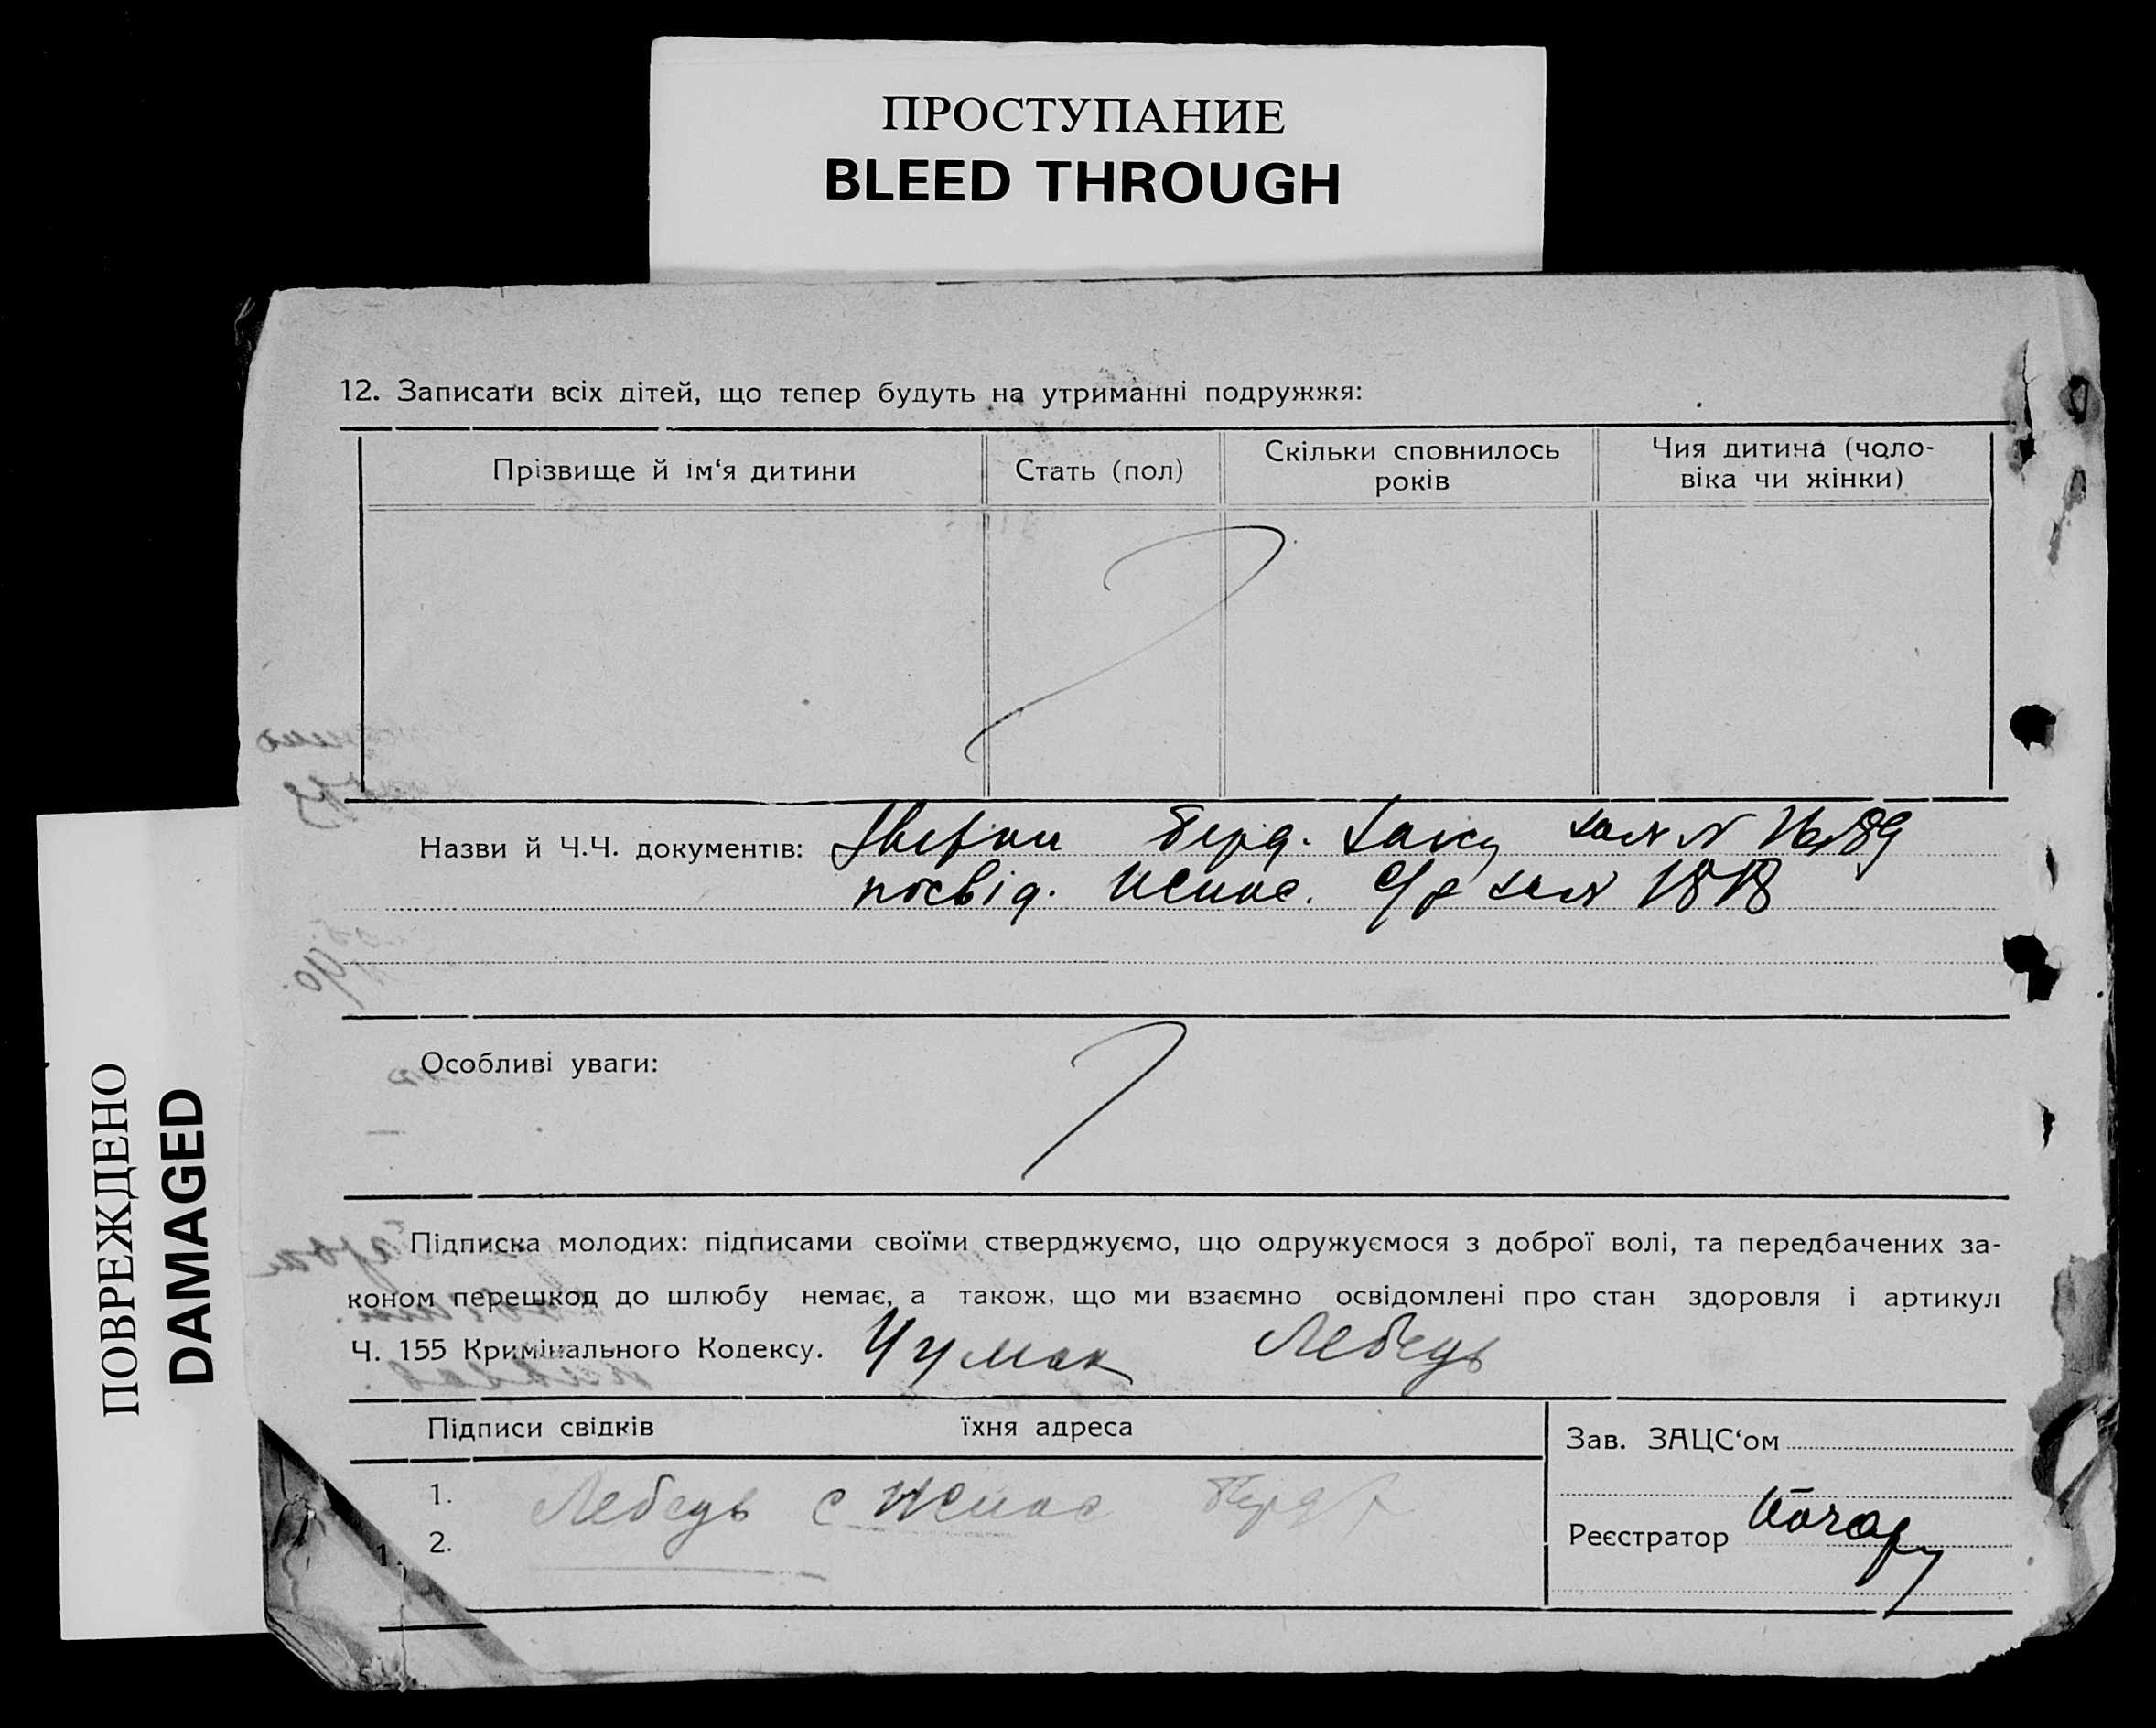 ПРОСТУПАНИЕ
BLEED THROUGH
ПОВРЕЖДЕНО
DAMAGED
12. Записати всіх дітей, що тепер будуть на утриманні подружжя:
Прізвище й ім‘я дитини
Стать (пол)
Скільки сповнилось
років
Чия дитина (чоло-
віка чи жінки)
Назви й Ч.Ч. документів:
посвід. с/р 1818
Особливі уваги:
Підписка молодих: підписами своїми стверджуємо, що одружуємося з доброї волі, та передбачених за-
коном перешкод до шлюбу немає, а також, що ми взаємно освідомлені про стан здоровля і артикул
Ч. 155 Кримінального Кодексу. Чумак Лебедь
Підписи свідків їхня адреса
1. Лебедь с
2.
1.
Зав. ЗАЦС‘ом
Реєстратор